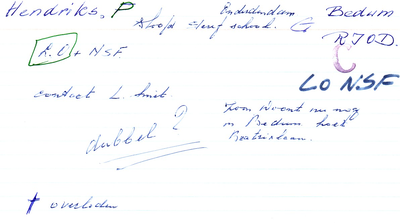 Hendriks, P
Hoofd school. G
Onderdendam
Bedum
RIOD.
L.O + NSF
LO NSF
contact L. Smit
Zoon woont nu nog
in Bedum hoek
Beatrixlaan.
dubbel ?
† overleden